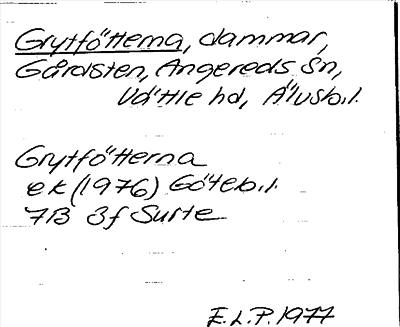 Grytfötterna, dammar,
Gårdsten, Angereds sn,
Vättle hd, Älvsb.l.
Grytfötterna
ek (1976) Göteb.l.
7B 3f Surte
E.L.P. 1977